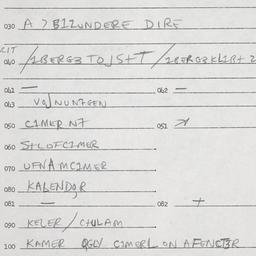 030 A > BIZUNDERE DIRE
RIT
040 /IBERGZ TOJSTT /IBERGZKLIBT 2
041 — 042 —
043 VOJNUNTGEN
050 CIMER NT 051
060 SHLOFCIMER
070 UFNAMCIMER
080 KALENDOR
081 — 082 +
090 KELER / CHULAM
100 KAMER ODLY CIMERL ON A FENCTER